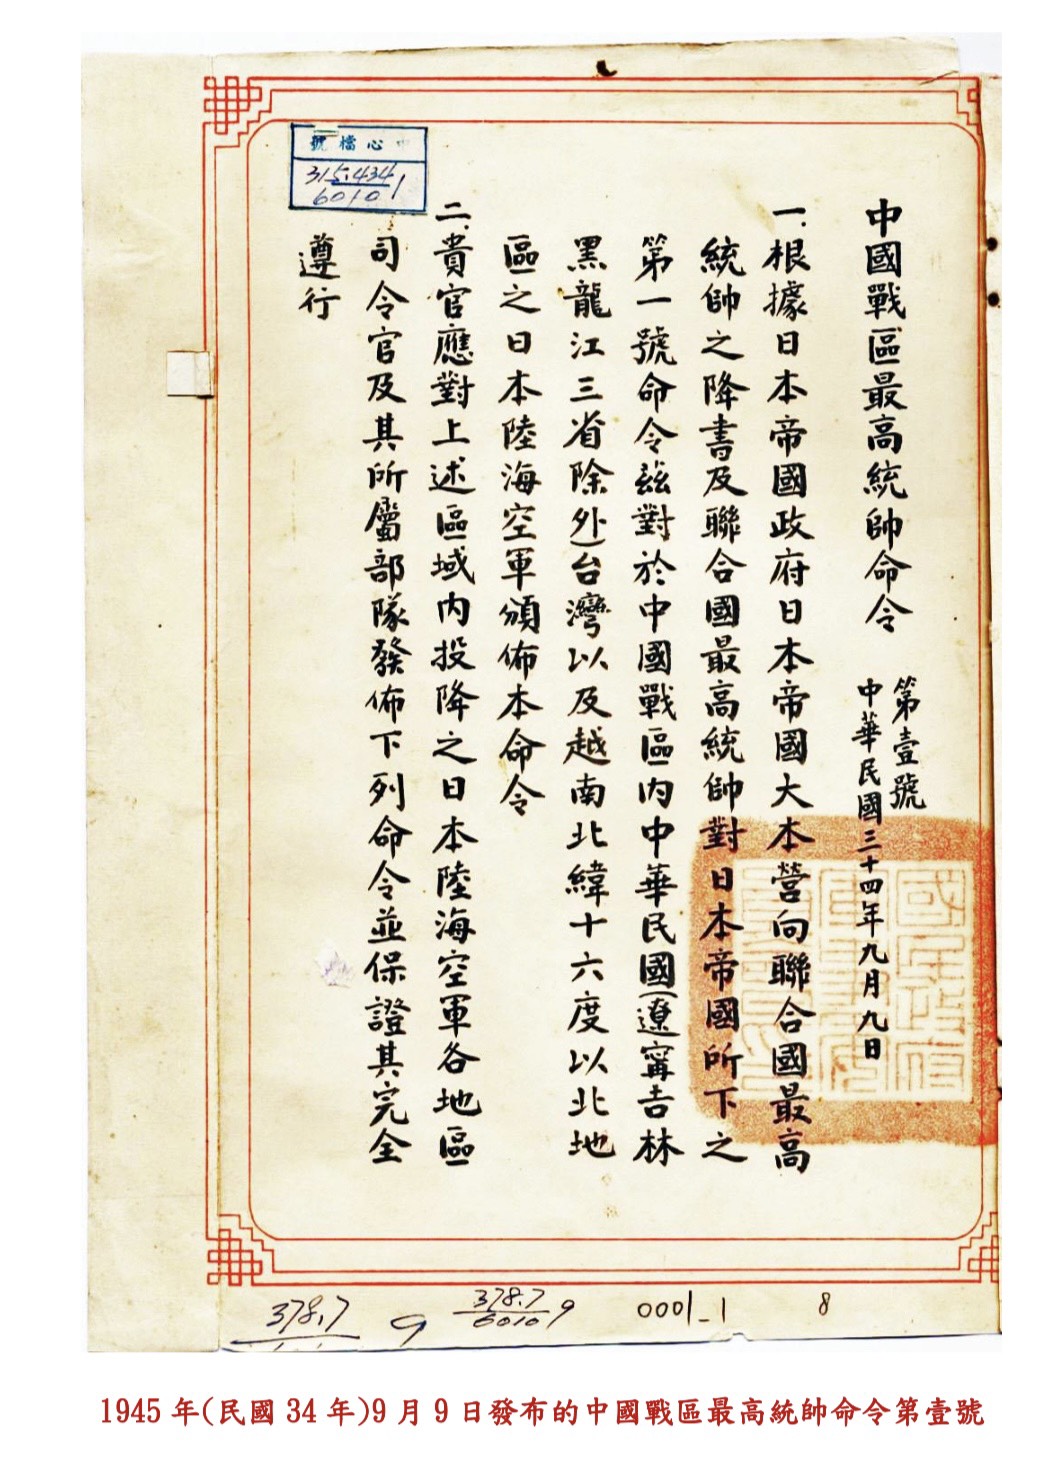 中國戰區最高統帥命令
第壹號
中華民國三十四年九月九日
一、根據日本帝國政府日本帝國大本營向聯合國最高
統帥之降書及聯合國最高統帥對日本帝國所下之
第一號命令茲對於中國戰區內中華民國(遼寧吉林
黑龍江三省除外)台灣以及越南北緯十六度以北地
區之日本陸海空軍頒佈本命令
二、貴官應對上述區域內投降之日本陸海空軍各地區
司令官及其所屬部隊發佈下列命令並保證其完全
遵行
心檔號
315.434
60101
378.7
9
378.7
6010
9
0001_1
8
1945年(民國34年)9月9日發布的中國戰區最高統帥命令第壹號